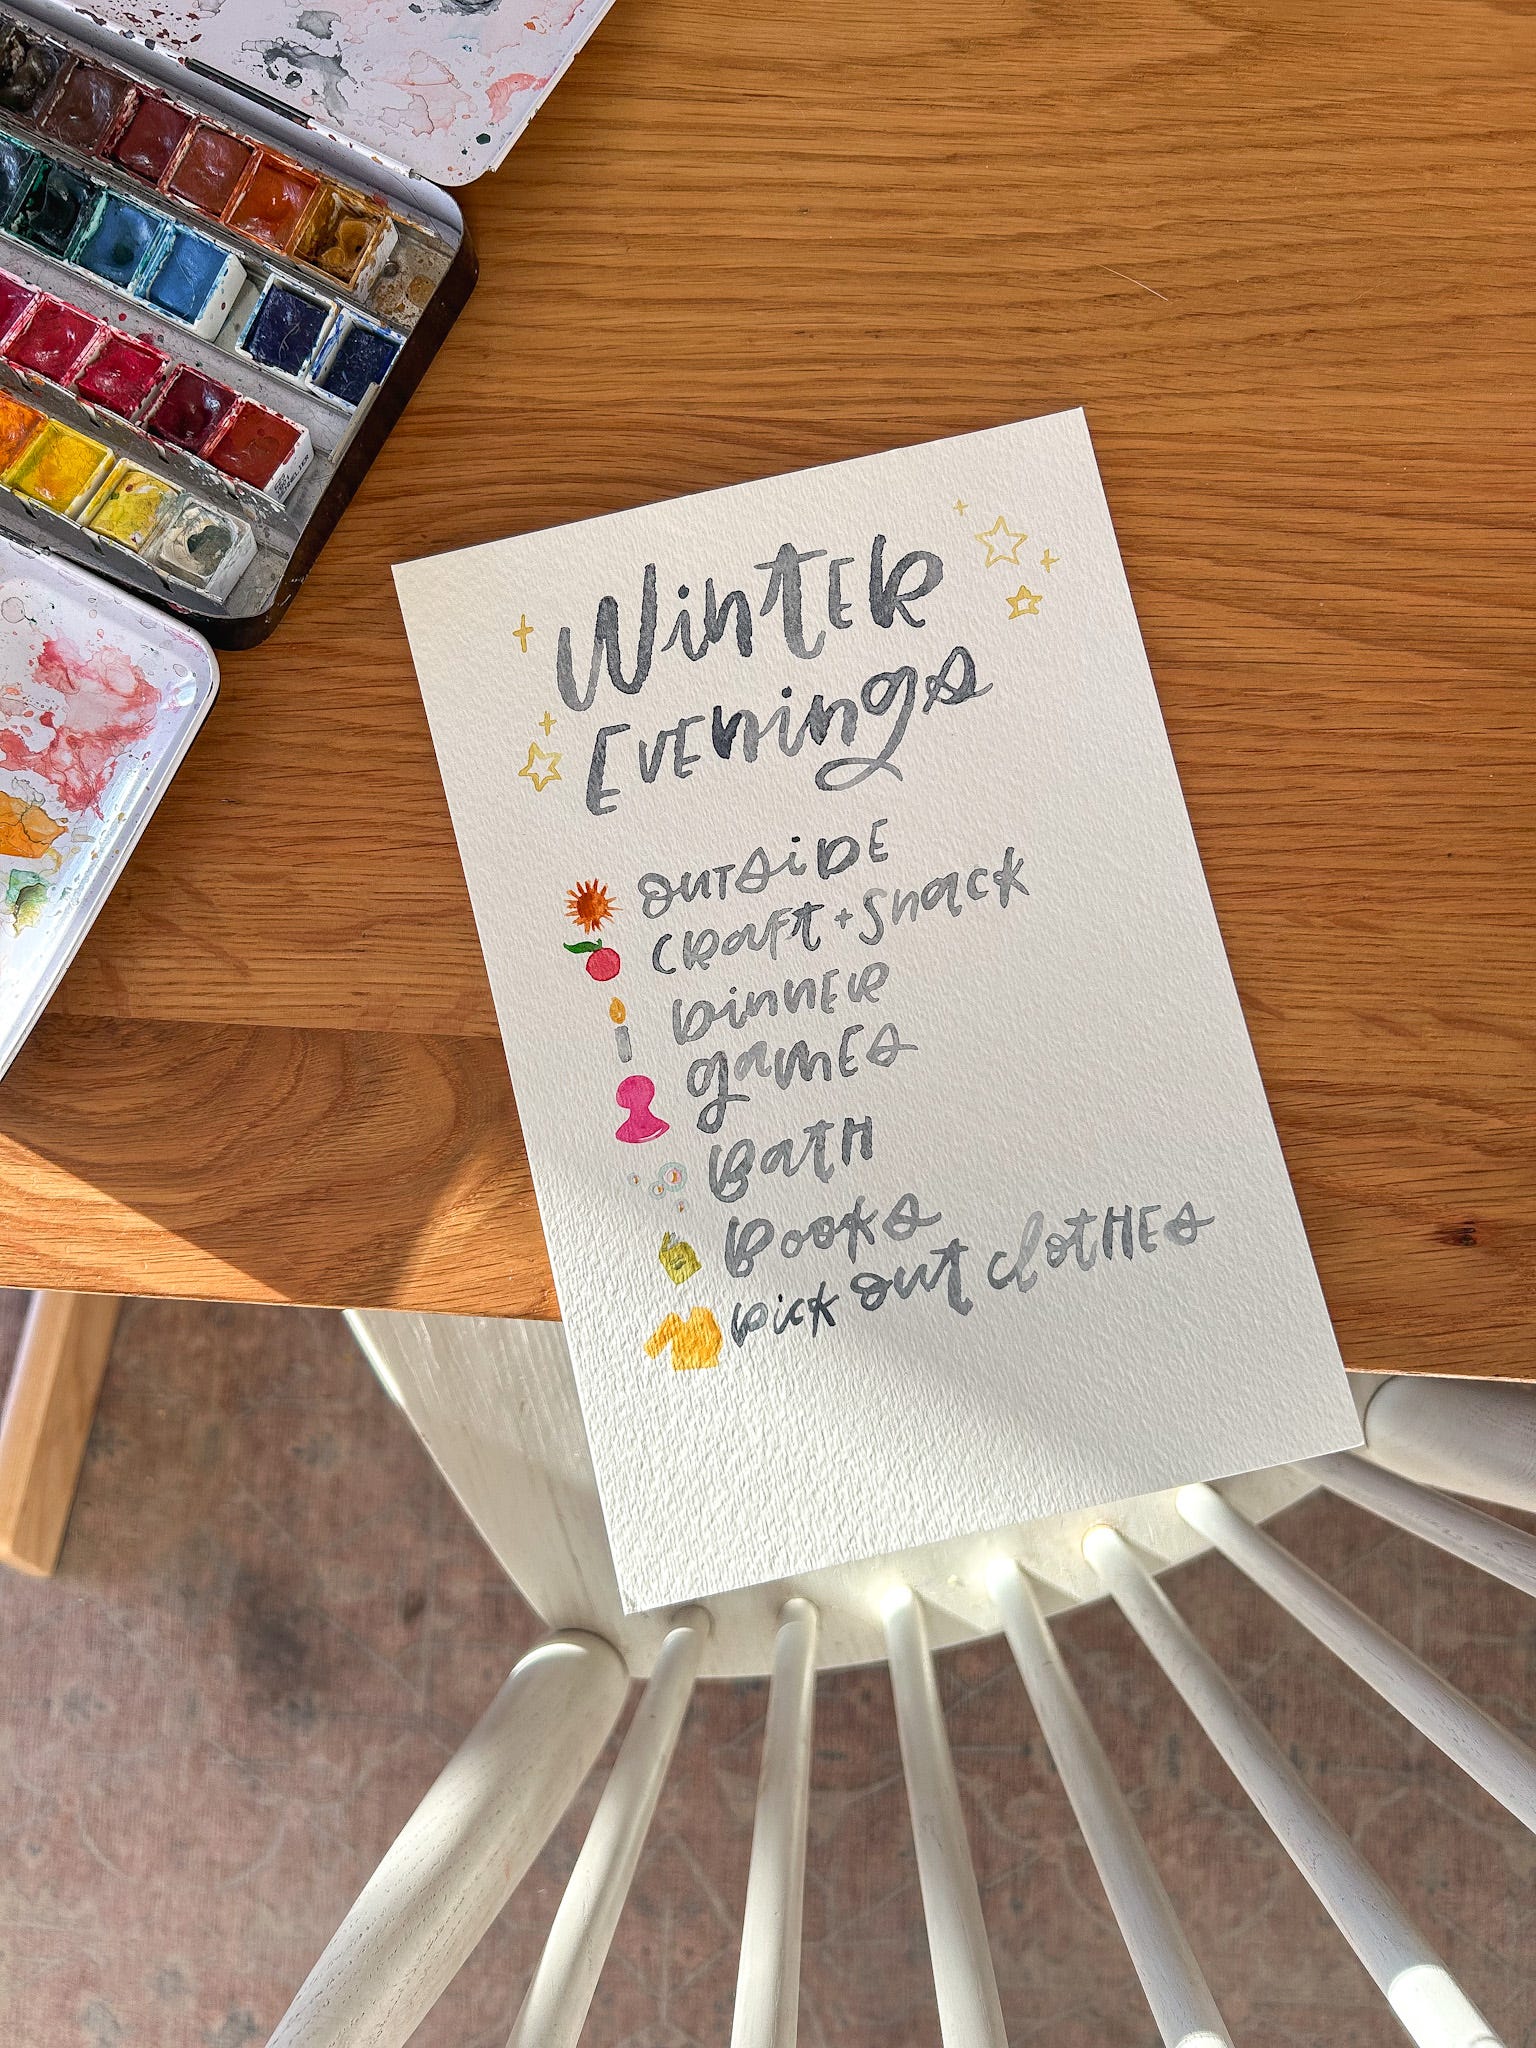 Winter
Evenings
outside
craft + snack
dinner
games
Bath
Books
pick out clothes